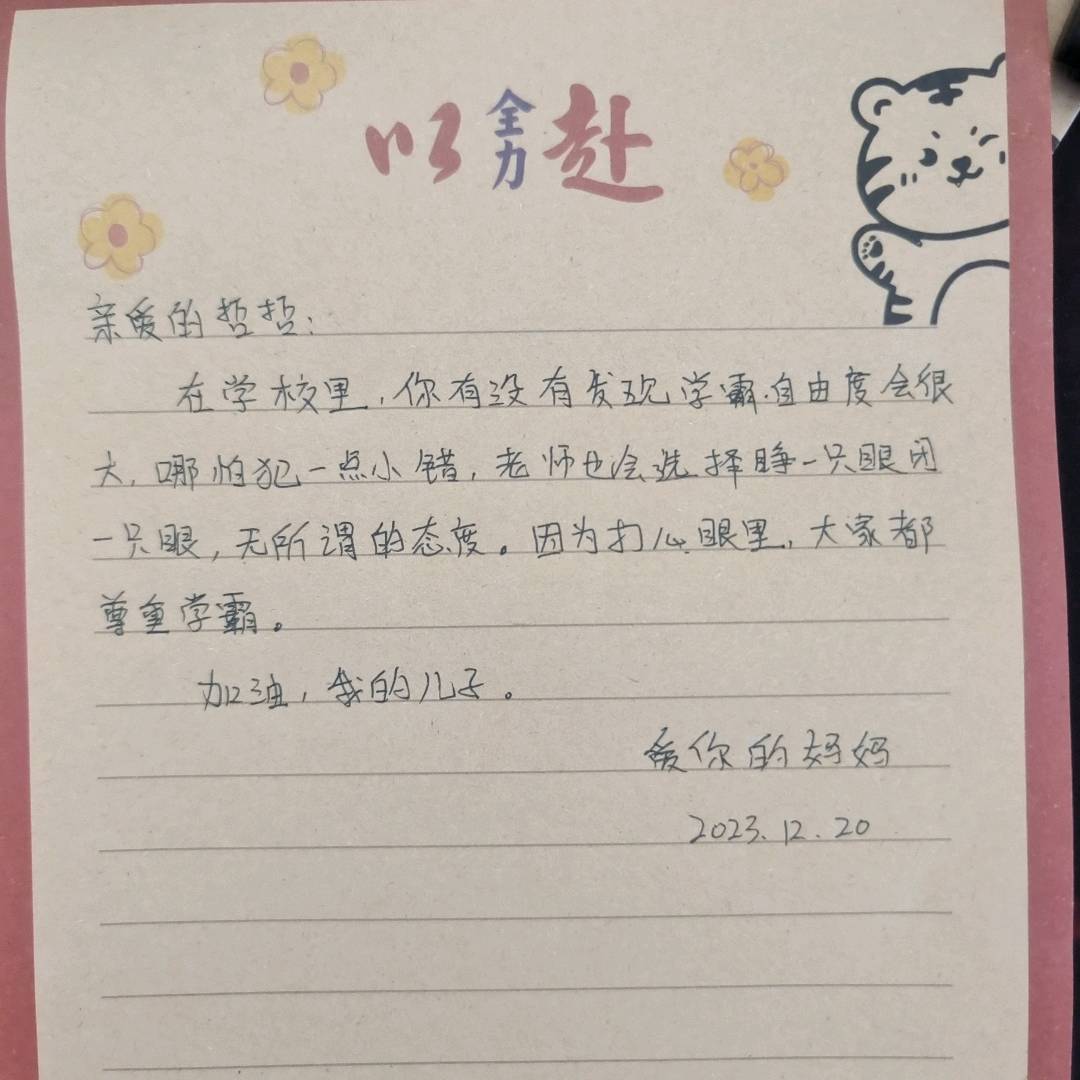 以全力赴
亲爱的哲哲：
在学校里，你有没有发现学霸.自由度会很
大，哪怕犯一点小错，老师也会选择睁一只眼闭
一只眼，无所谓的态度。因为打心眼里，大家都
尊重学霸。
加油，我的儿子。
爱你的妈妈
2023.12.20